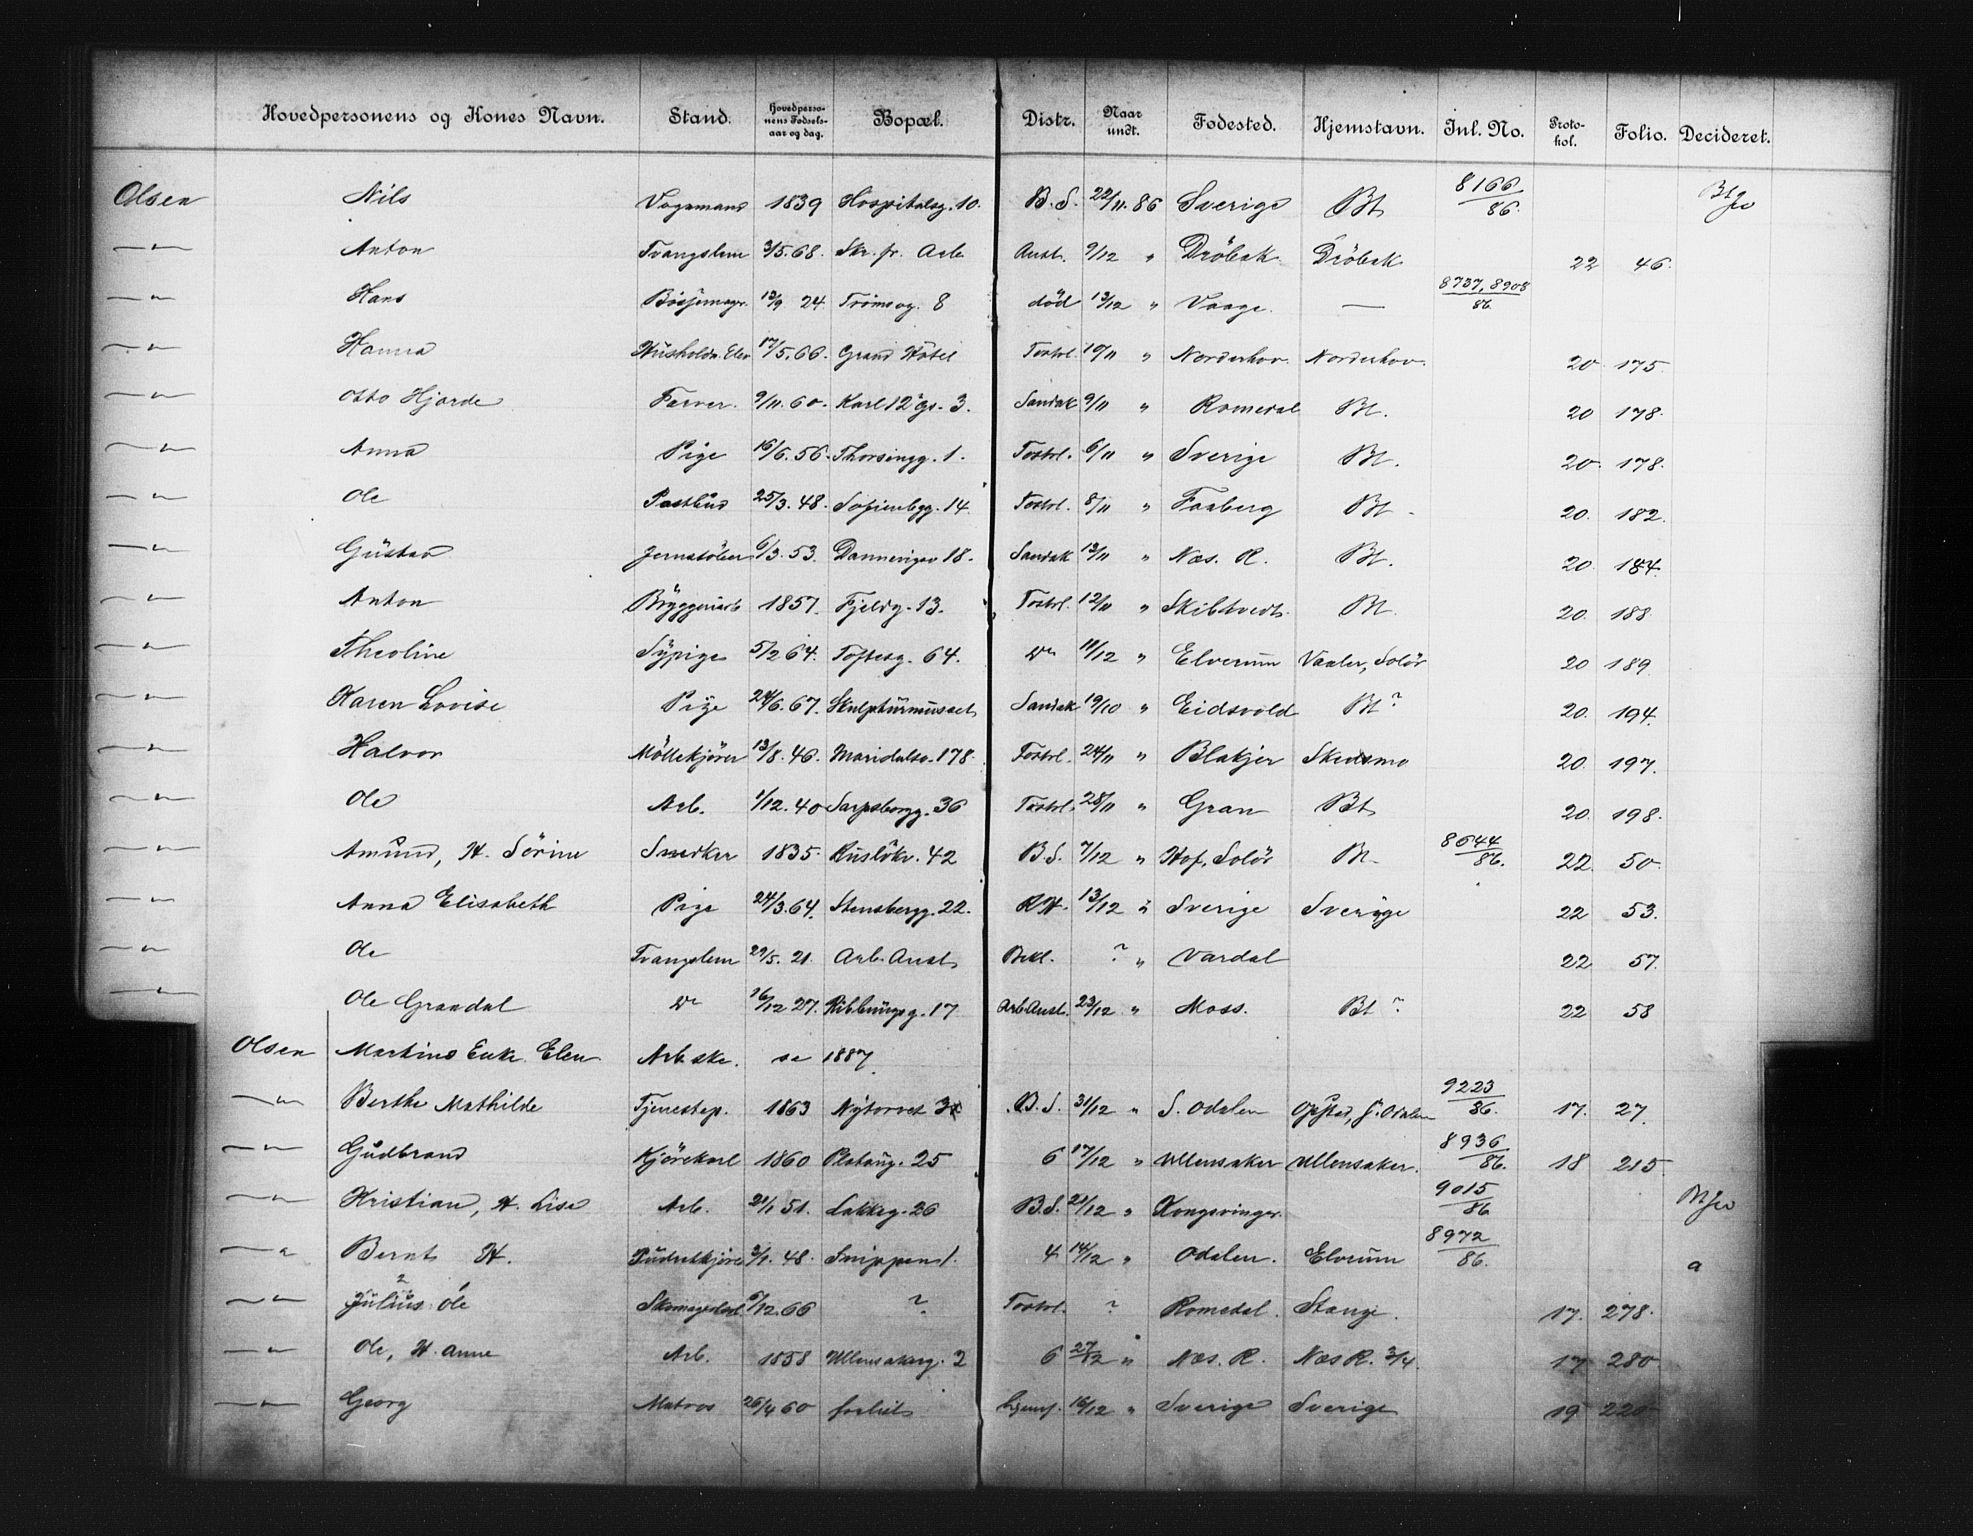 Hovedpersonens og Kones Navn. Stand. Hovedpersonens Fødselsaar og dag. Bopæl. Distr. Naar undt. Fødested. Hjemstavn. Jnl. No. Protokol. Folio. Decideret.
Olsen Nils Vognmand 1839 Hospitalsg. 10. B. S. 22/11. 86 Sverige Bt 8166/86.
—"— Anton Tvangslem 3/5. 68. Skr. fr. Arb. Anst. 9/12 " Dröbak Dröbak 22 46.
—"— Hans 13/9 24 Tromsög. 8 död 13/12 " Vaage. — 8737, 8908/86.
—"— Hanna Husholdn. Elev 17/5. 66. Grand Hotel Tostrl. 10/11 " Norderhov. Norderhov. 20 175.
—"— Otto Hjarde Farver. 9/11. 60. Karl 12' gs. 3. Sandak 9/11 " Romedal Bt. 20 178.
—"— Anna Pige 16/6. 56. Thorsingg. 1. Tostrl. 6/11 " Sverige Bt. 20. 178.
—"— Ole Postbud 25/3. 48. Sofienbgg. 14 Tostrl. 8/11 " Faaberg Bt. 20. 182.
—"— Gustav Jernstöber 6/3. 53. Dannevigsv 18. Sandak 13/11 " Næs. R. Bt. 20. 184.
—"— Anton Bryggeriarb 1857. Fjeldg. 13. Tostrl. 12/11 " Skibtvedt. Bt. 20. 188
—"— Theoline Sypige 5/2 64. Toftesg. 64. Do 11/12 " Elverum Vaaler, Solör 20 189
—"— Karen Lovise Pige 24/6. 67. Skulpturmuseet Sandak 19/10 " Eidsvold Bt ? 20. 194.
—"— Halvor Möllekjörer 13/8. 46. Maridalsv. 178. Tostrl. 24/11 " Blakjer Skedsmo 20. 197.
—"— Ole Arb. 1/12. 40 Sarpsborgg. 36 Tostrl. 28/11 " Gran Bt 20. 198.
—"— Amund, H. Sörine Snedker 1835. Ruslökv. 42 B. S. 7/12 " Hof, Solör Bt. 8644/86. 22. 50.
—"— Anna Elisabeth Pige 24/3. 64. Stensbergg. 22. R.H. 13/12 " Sverige Sverige 22 53.
—"— Ole Tvangslem 29/5. 21. Arb. Anst. Bekl. ? " Vardal 22 57.
—"— Ole Graadal Do 16/12 27. Ribbungsg. 17 Arb Anst. 23/12 " Moss. Bt ? 22 58
Olsen Martins Enke Elen Arb. ske. se 1887
—"— Berthe Mathilde Tjenestep. 1863 Nytorvet B. S. 31/12 " S. Odalen S. Odalen 9223/86. 17. 27.
—"— Gudbrand Kjörekarl 1860 Platoug. 25 6 17/12 " Ullensaker Ullensaker. 8936/86. 18 215
—"— Kristian, H. Lise Arb. 21/1 51. Lakkeg. 26 B. S. 21/12 " Kongsvinger. 9015/86
—"— Bernt H. 3/1. 48. Snippen 1. 4 14/12 " Odalen. Elverum 8972/86. a
—"— Julius 2 Ole 1 12. 66 ? Tostrl. ? Romedal. Stange. 17. 278.
—"— Ole, H. Anne Arb. 1858 Ullensakerg. 2 6 27/12 " Næs. R. Næs R. 3/4. 17 280
—"— Georg Matros 26/4 60 forhist. 16/12 " Sverige Sverige 19 220